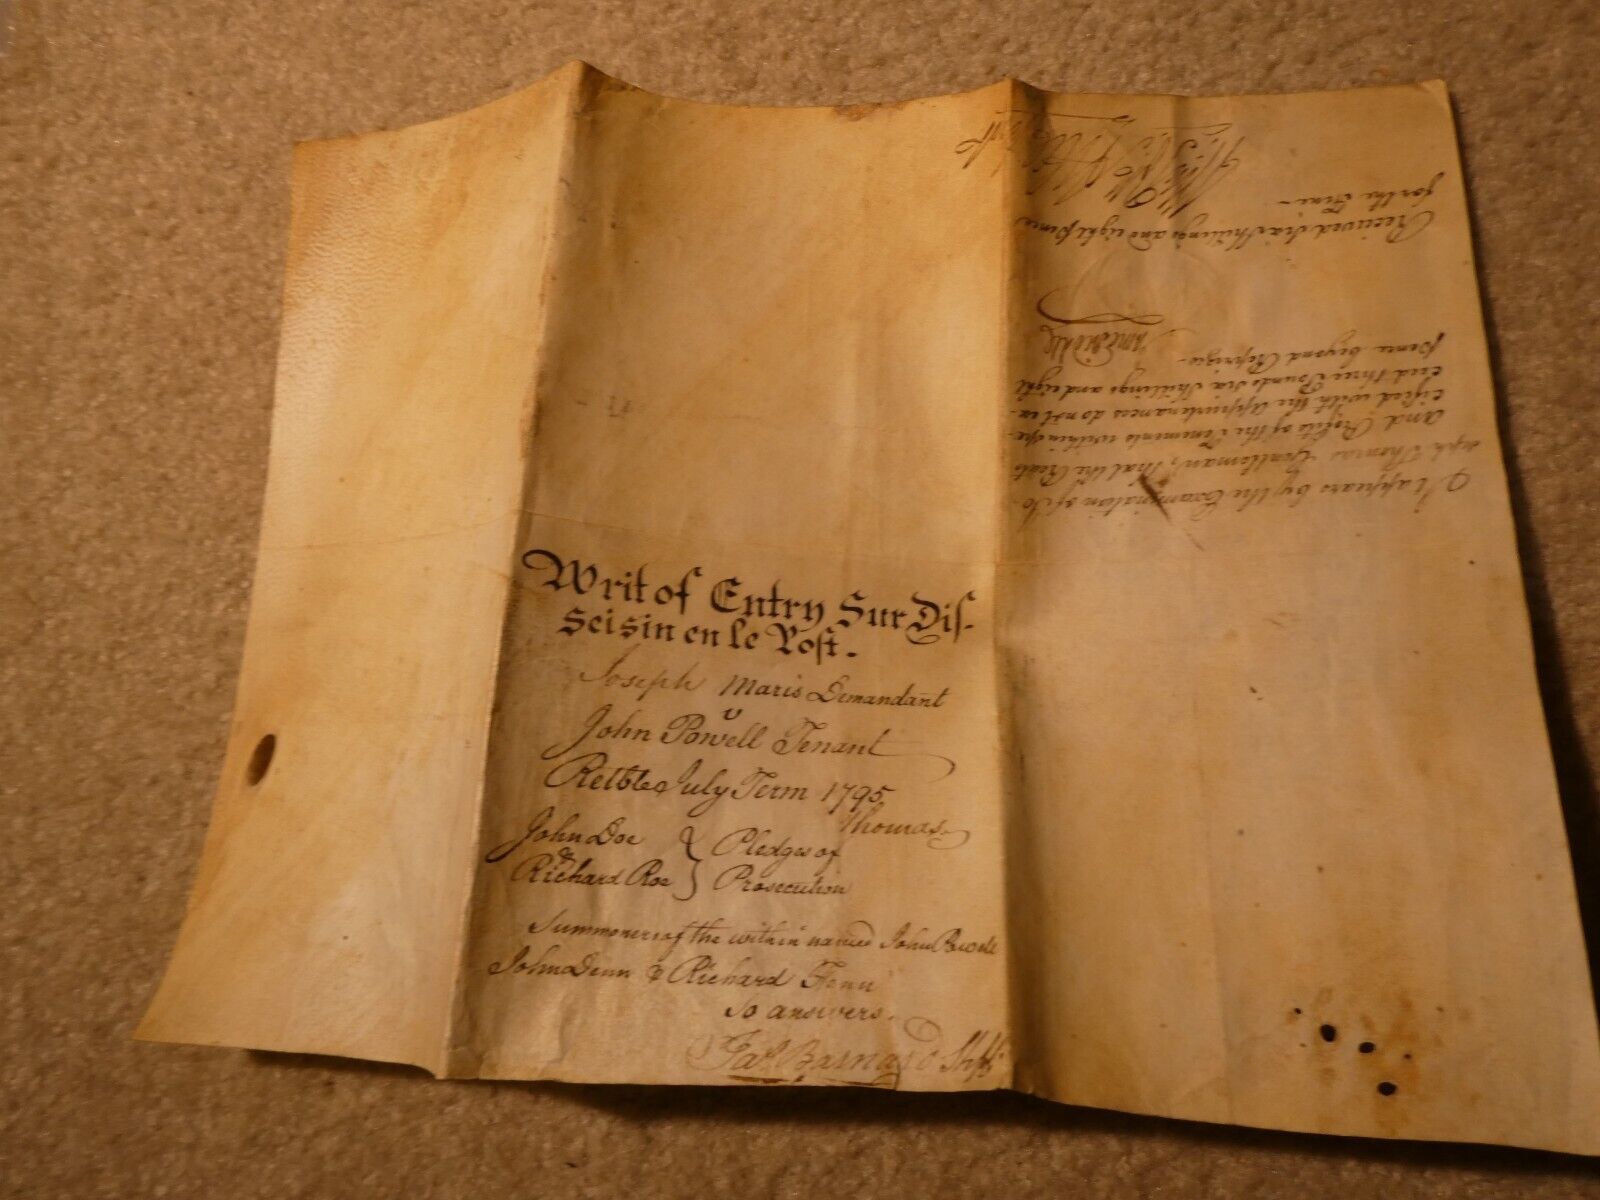 Writ of Entry Sur Dis-
seisin en le Post.
Joseph Maris Demandant
v
John Powell Tenant
Retble July Term 1795.
Thomas
John Doe
&
Richard Roe
} Pledges of
Prosecution
Summoners of the within named John Powell
John Denn & Richard Fenn
So answers.
Jas. Barnard Shff
It appears by the Examination of Jo-
seph Thomas Gentleman, that the Rents
and Profits of the Tenements within spe-
cified with the Appurtenances do not ex-
ceed three Pounds six Shillings and eight
pence beyond Reprizes
Received six Shillings and eight pence
for the Fine